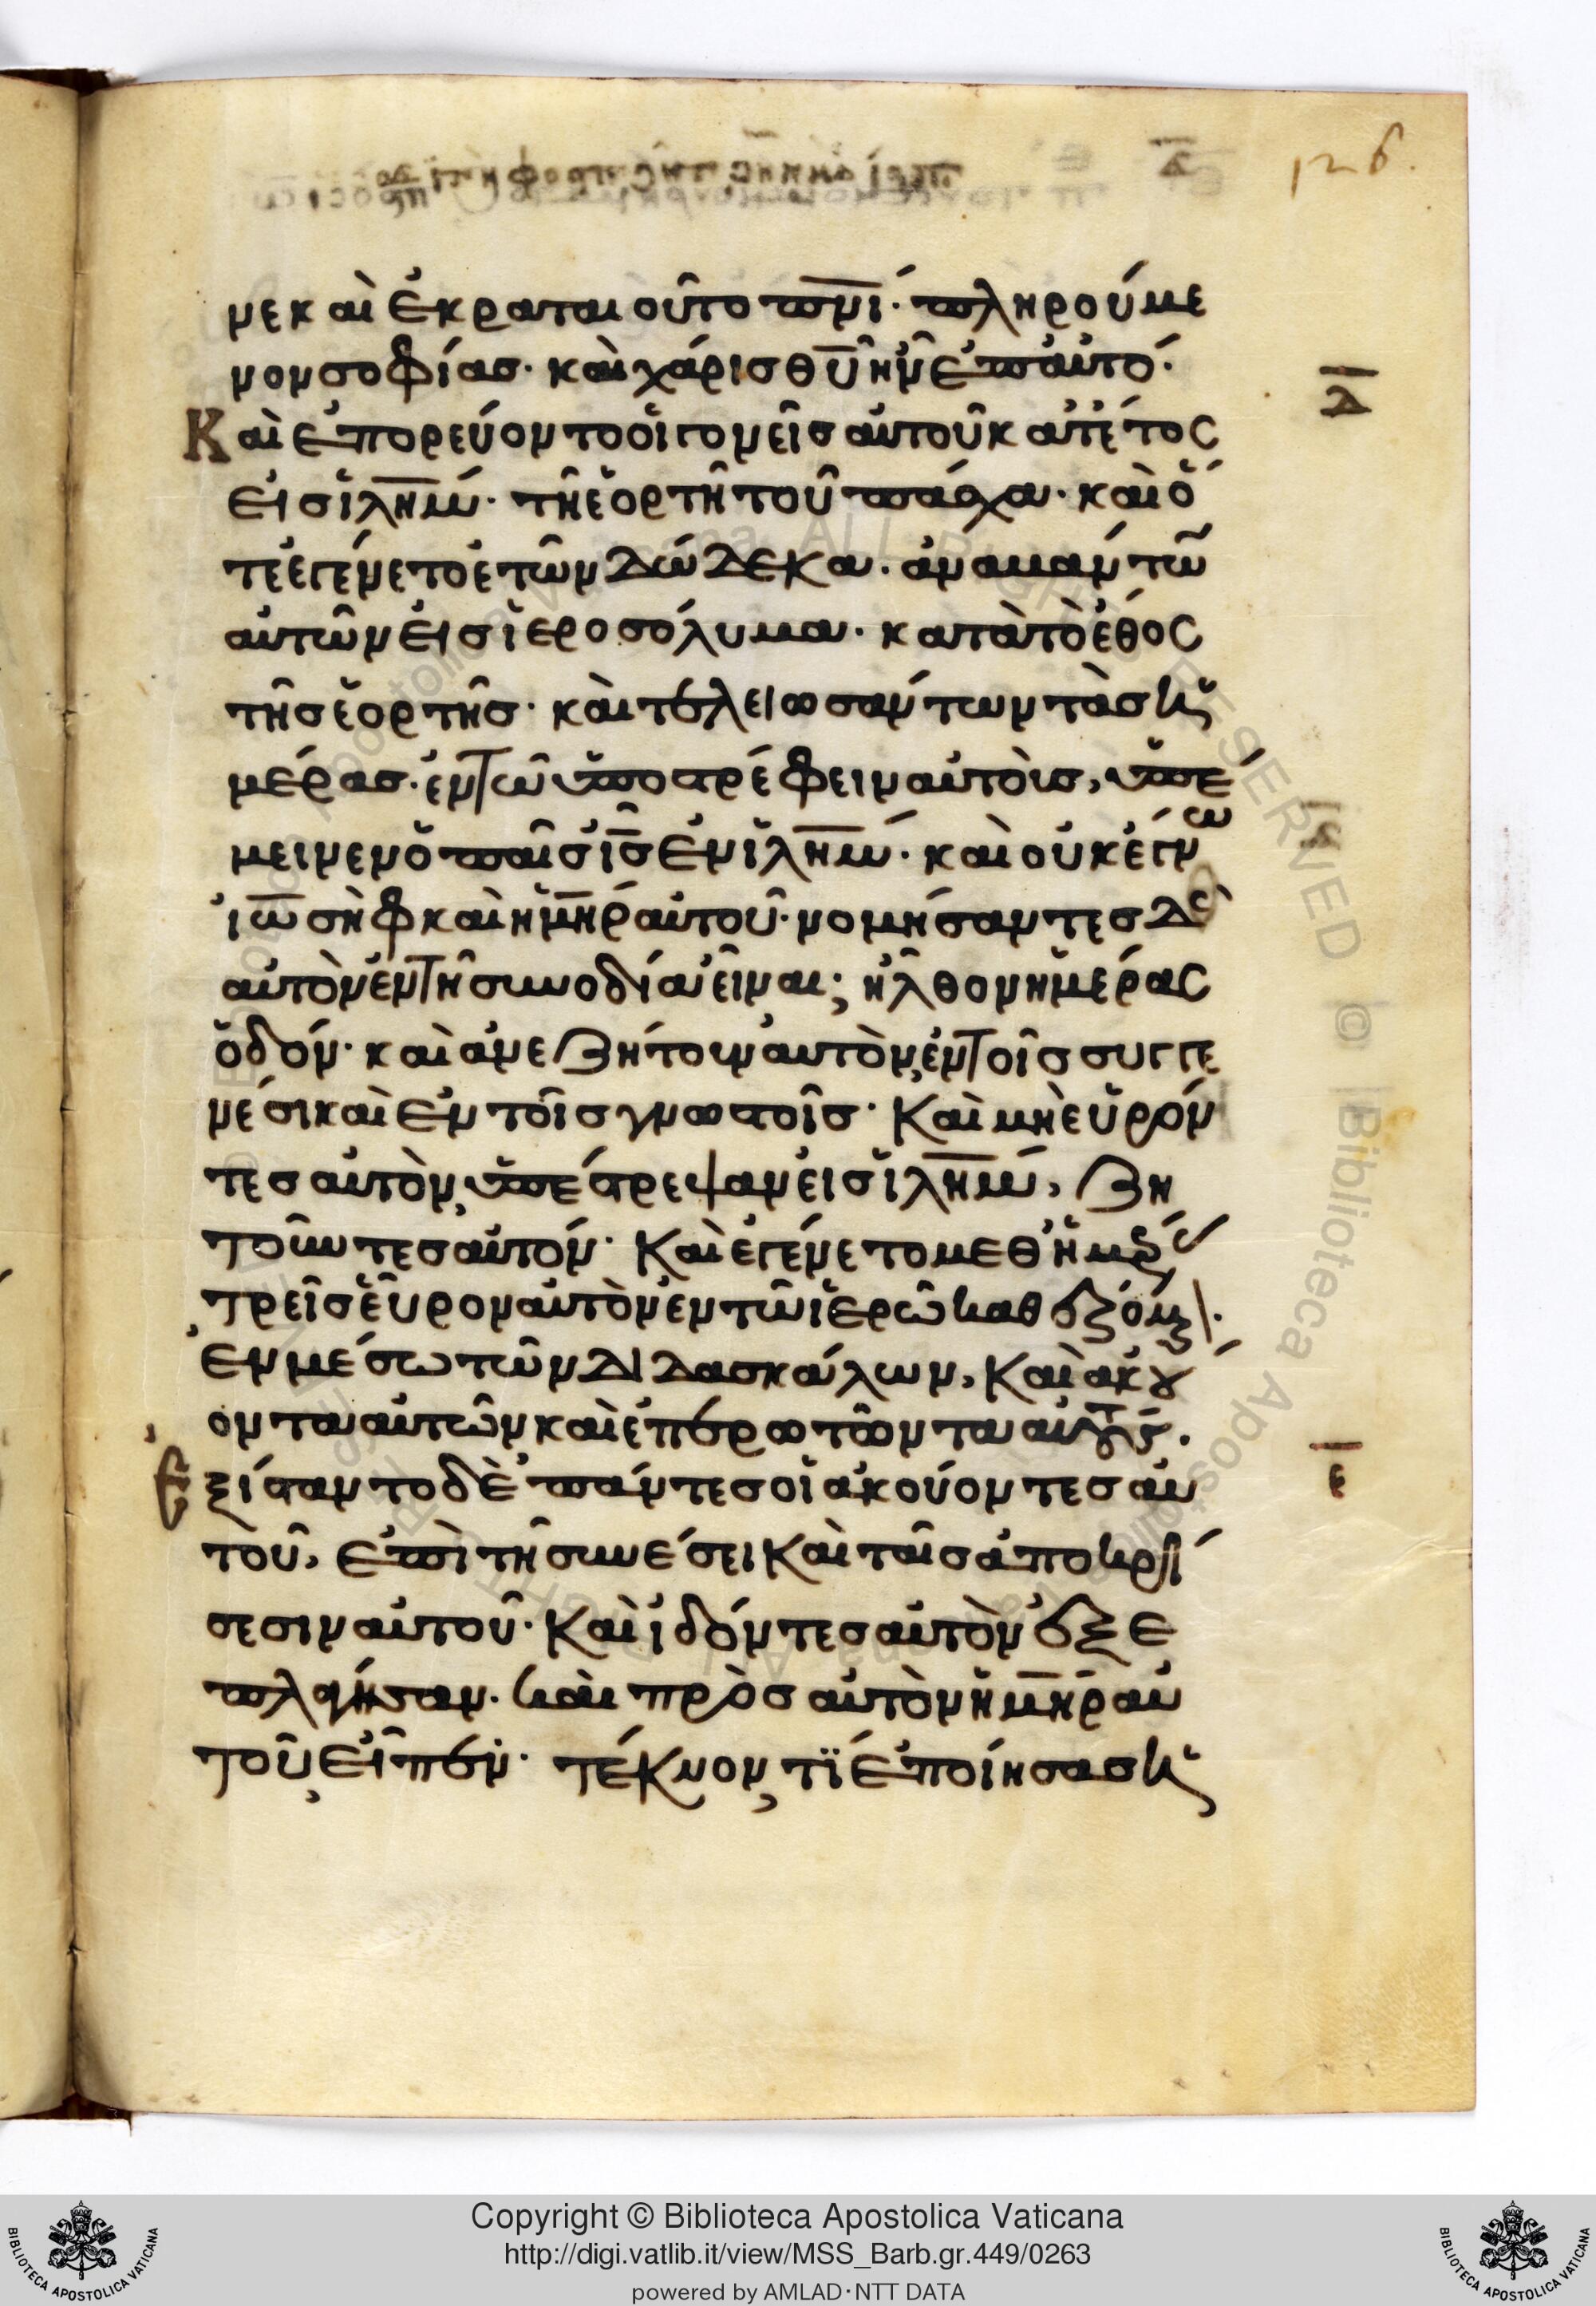 ρκδ.
νεκαὶ ἐκραταιοῦτο π̅ν̅ι̅· πληρούμε
νον σοφίας· καὶ χάρις θ̅υ̅ ἦν ἐπ' αὐτό·
Καὶ ἐπορεύοντο οἱ γονεῖς αὐτοῦ κατ' ἔτος
δ̅
εἰς ἱλ̅η̅μ̅· τῇ ἑορτῇ τοῦ πάσχα· καὶ ὅ
τε ἐγένετο ἐτῶν δώδεκα· ἀναβάντω
αὐτῶν εἰς ἱεροσόλυμα· κατὰ τὸ ἔθος
τῆς ἑορτῆς· καὶ τελειωσάντων τὰς ἡ
μέρας· ἐν τῷ ὑποστρέφειν αὐτοὺς, ὑπέ
μεινεν ὁ παῖς ι̅ς̅ ἐν ἱλ̅η̅μ̅· καὶ οὐκ ἔγνω
ἰωσὴφ καὶ ἡ μ̅η̅ρ̅ αὐτοῦ· νομήσαντες δὲ
αὐτὸν ἐν τῇ συνοδία εἶναι; ἦλθον ἡμέρας
ὁδόν· καὶ ἀνεζήτουν αὐτὸν, ἐν τοῖς συγγε
νέσι καὶ ἐν τοῖς γνωστοῖς· Καὶ μὴ εὑρόν
τες αὐτὸν, ὑπέστρεψαν εἰς ἱλ̅η̅μ̅, ζη
τοῦντες αὐτόν· Καὶ ἐγένετο μεθ' ἡμέρας
τρεῖς εὗρον αὐτὸν ἐν τῷ ἱερῷ καθεζόμενον·
ἐν μέσω τῶν διδασκάλων, Καὶ ἀκού
οντα αὐτῶν καὶ ἐπερωτῶντα αὐτούς.
Ἐξίσταντο δὲ πάντες οἱ ἀκούοντες αὐ
ε̅
τοῦ, ἐπὶ τῇ συνέσει Καὶ ταῖς ἀποκρί
σεσιν αὐτοῦ· Καὶ ἰδόντες αὐτὸν ἐξε
πλάγησαν· καὶ πρὸς αὐτὸν ἡ μ̅η̅ρ̅ αὐ
τοῦ, εἶπεν· τέκνον, τί ἐποίησας ἡ
Copyright © Biblioteca Apostolica Vaticana
http://digi.vatlib.it/view/MSS_Barb.gr.449/0263
powered by AMLAD·NTT DATA
BIBLIOTECA APOSTOLICA VATICANA
BIBLIOTECA APOSTOLICA VATICANA